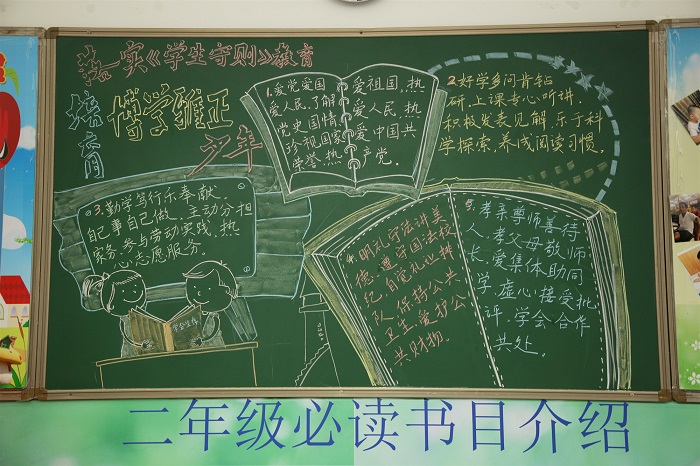 落实《学生守则》教育
培育
博学雅正
少年
1.爱党爱国
爱人民.了解
党史国情,
珍视国家
荣誉.热
爱祖国,热
爱人民,热
爱中国共
产党。
2.好学多问肯钻
研.上课专心听讲.
积极发表见解.乐于科
学探索.养成阅读习惯。
3.勤学笃行乐奉献.
自己事自己做.主动分担
家务.参与劳动实践.热
心志愿服务。
4.明礼守法讲美
德.遵守国法校
纪.自觉礼让排
队.保持公共
卫生.爱护公
共财物。
5.孝亲尊师善待
人.孝父母敬师
长.爱集体助同
学.虚心接受批
评.学会合作
共处。
二年级必读书目介绍